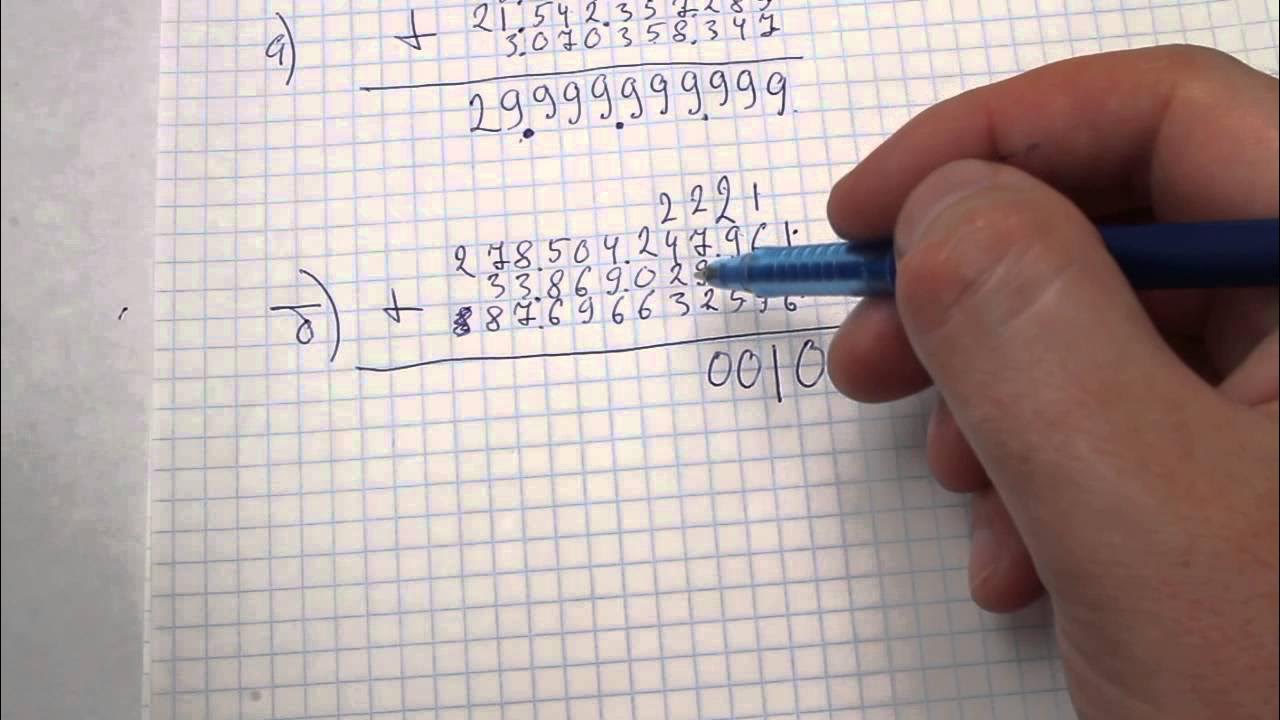 а)
+
21.542.357.289
3.070358.347
29.999.999.999
2 2 2 1
б)
+
278.504.247.961
33.869.02
87.69663
0010